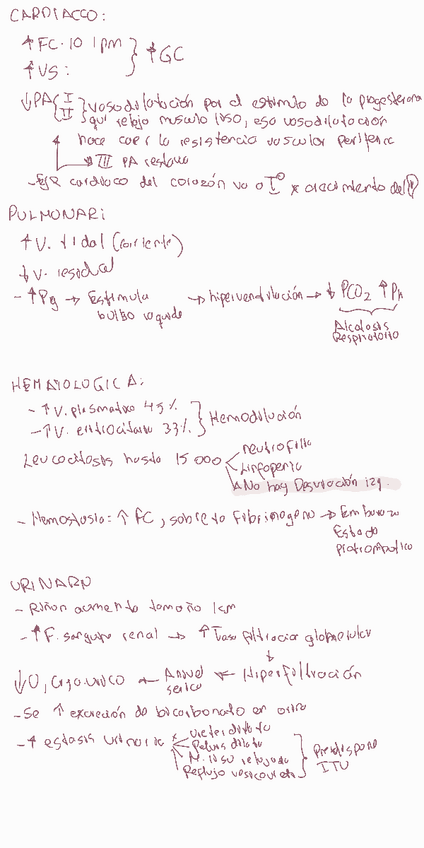 CARDIACO:
↑ FC·10 lpm } ↑GC
↑ VS:
↓PA { I II } vasodilatación por el estimulo de la progesterona
que relaja musculo liso, esa vasodilatación
hace caer la resistencia vascular periferica
III PA restaura
- Eje cardiaco del corazón va a I° x crecimiento del
PULMONAR:
↑ V. tidal (corriente)
↓ V. residual
- ↑ Pg → Estimula bulbo raquideo → hiperventilación → ↓ PCO2 ↑ PH
Alcalosis
Respiratorio
HEMATOLOGICA:
- ↑ V. plasmatico 45%
- ↑ V. eritrocitario 33% } Hemodilución
Leucocitosis hasta 15 000
neutrofilia
Linfopenia
No hay Desviación izq.
- Hemostasia: ↑ FC, sobre to Fibrinogeno → Embarazo
Estado
protrombotico
URINARIO
- Riñon aumenta tamaño 1cm
- ↑ F. sanguineo renal → ↑ Tasa filtración glomerular
↓ U, Cr, ac. urico ← A nivel serico ← Hiperfiltración
- Se ↑ excreción de bicarbonato en orina
- ↑ estasis urinaria x
Ureter dilata
Pelvis dilata
M. liso relajado
Reflujo vesicoureteral
} Predispone
ITU